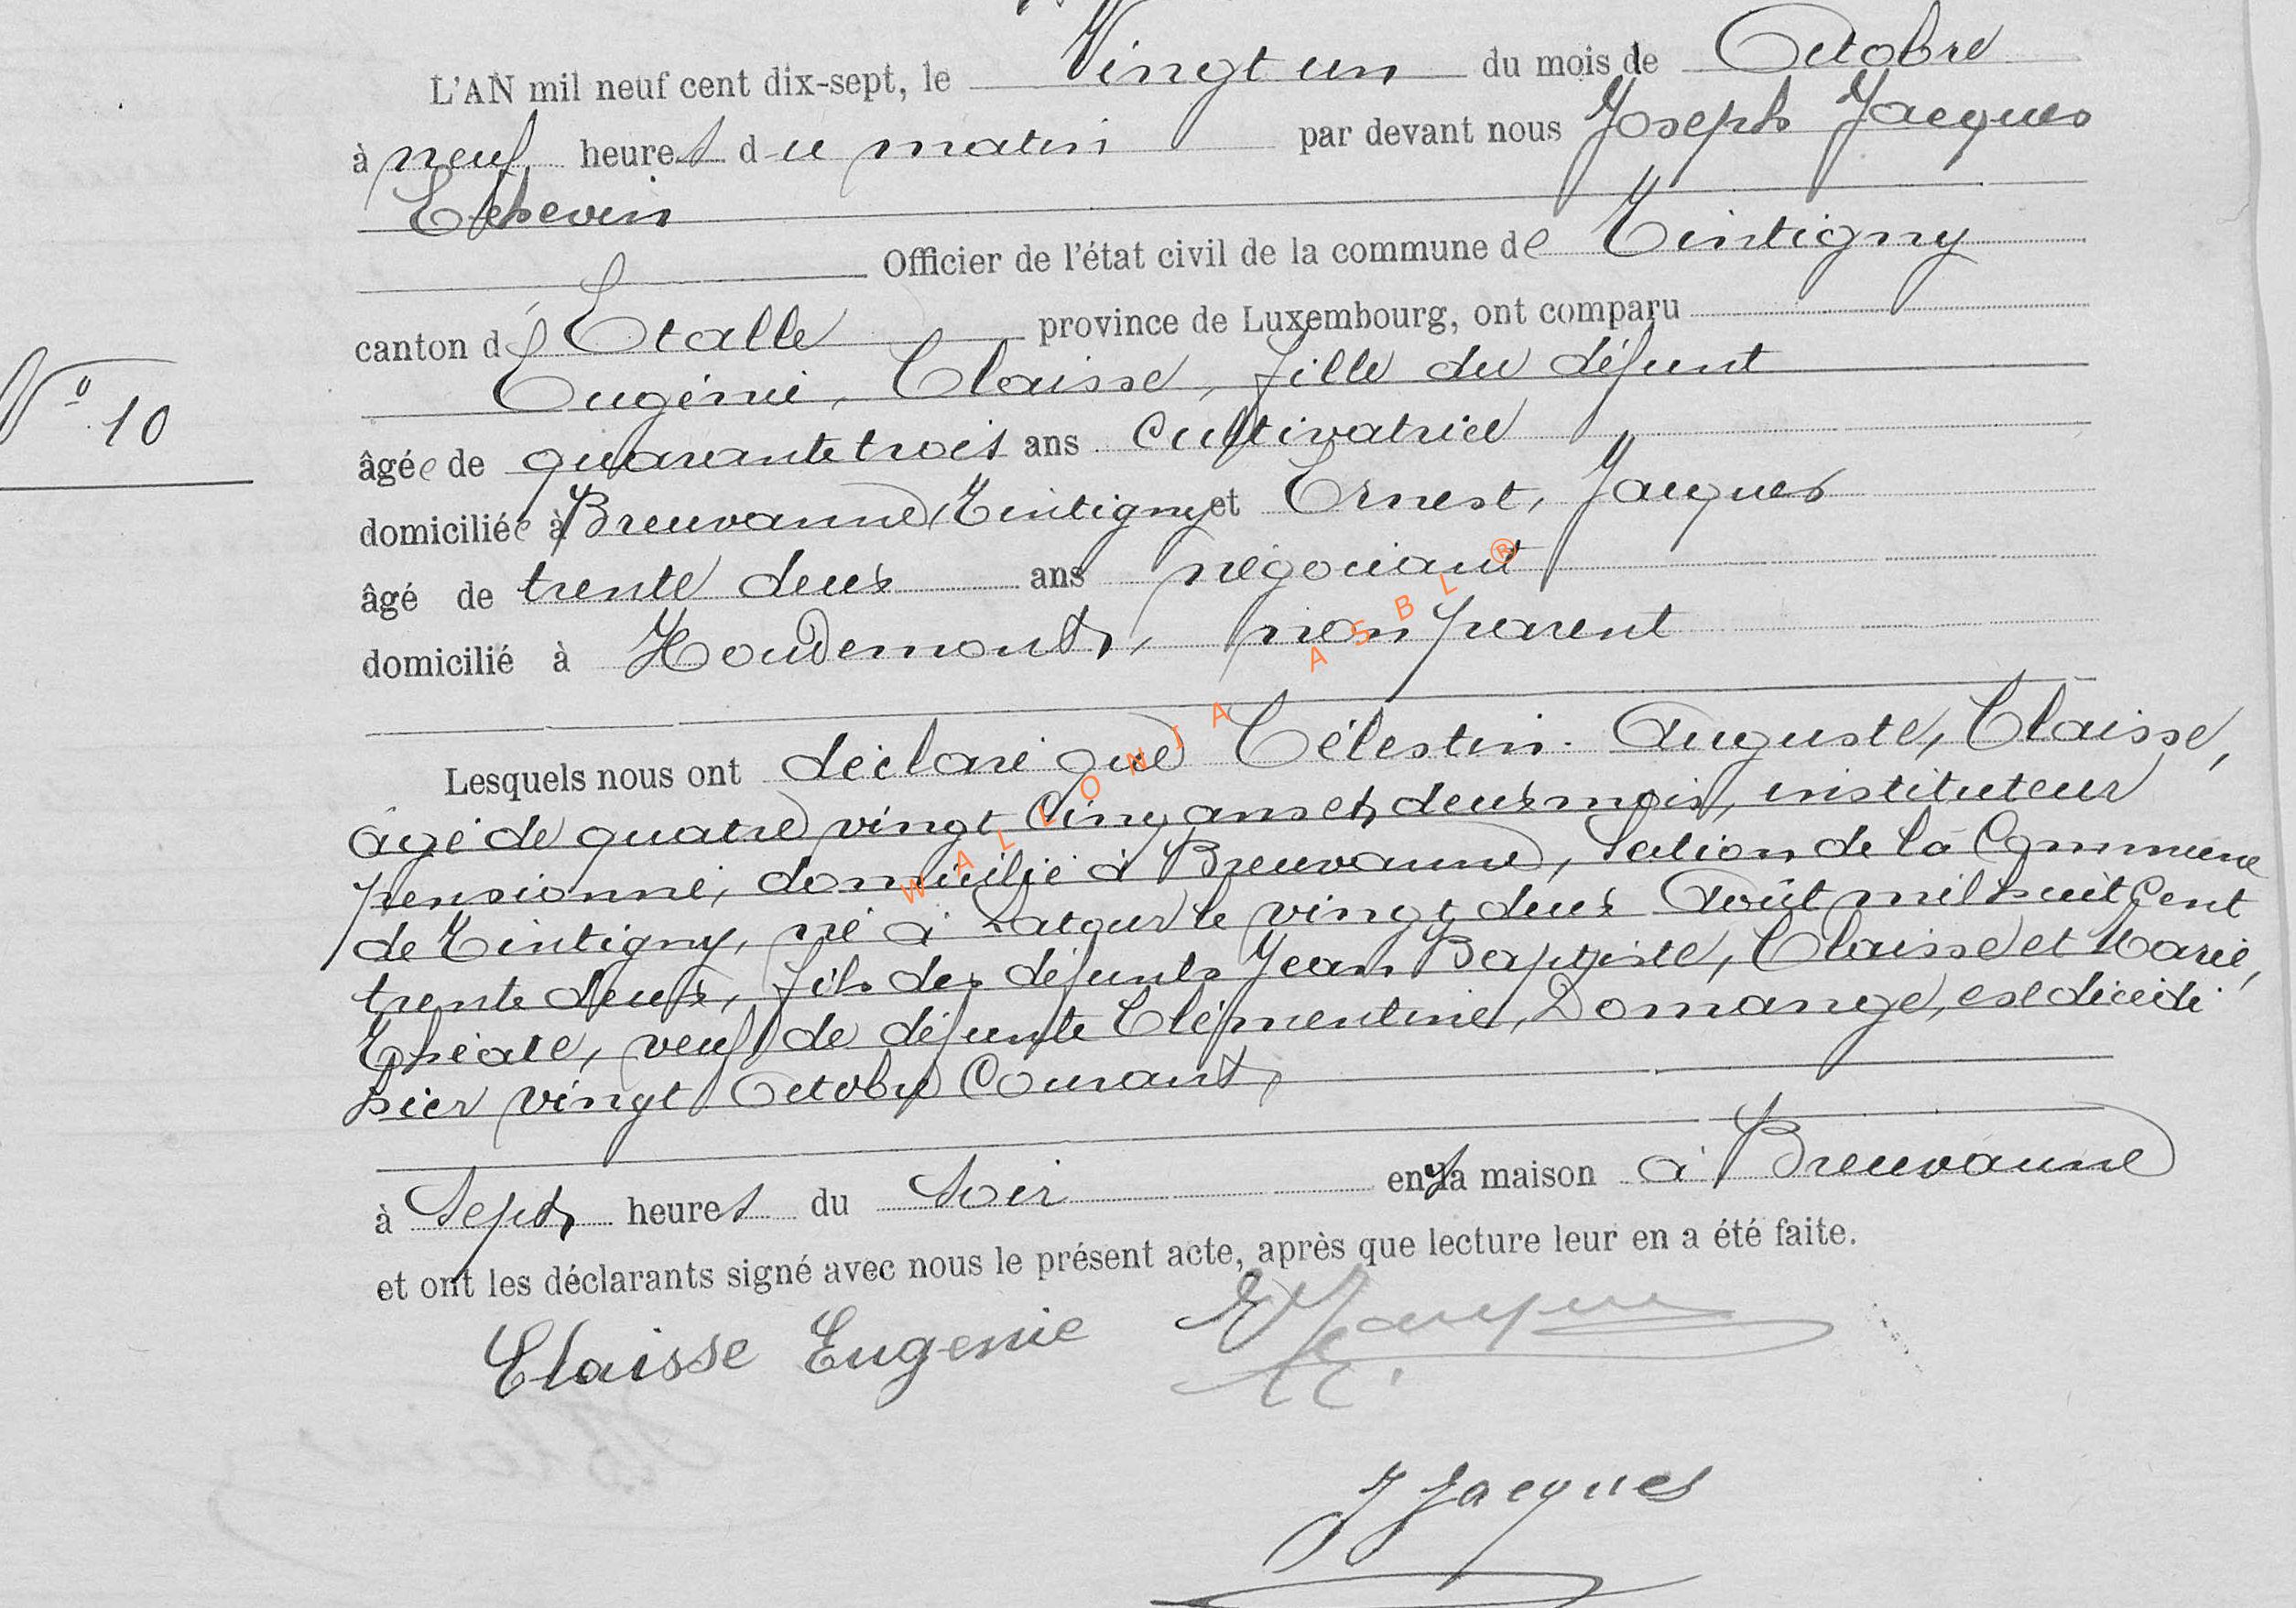 L'AN mil neuf cent dix-sept, le Vingt un du mois de Octobre
à neuf heures du matin par devant nous Joseph Jacques
Echevin
Officier de l'état civil de la commune de Tintigny
canton d'Etalle province de Luxembourg, ont comparu
Eugénie, Claisse, fille du défunt
N° 10
âgée de quarante trois ans Cultivatrice
domiciliée à Breuvanne, Tintigny et Ernest, Jacques
âgé de trente deux ans négociant
domicilié à Houdemont, non parent
Lesquels nous ont déclaré que Célestin. Auguste, Claisse,
âgé de quatre vingt Cinq ans et deux mois, instituteur
pensionné, domicilié à Breuvanne, Section de la Commune
de Tintigny, né à Latour le vingt deux Août mil huit Cent
trente deux, fils des défunts Jean Baptiste, Claisse et Marie,
veuf de défunte Clémentine, Domange, est décédé
hier vingt Octobre Courant,
à Sept heures du Soir en sa maison à Breuvanne
et ont les déclarants signé avec nous le présent acte, après que lecture leur en a été faite.
Claisse Eugenie E Jacques
J Jacques
WALLONIA ASBL ®